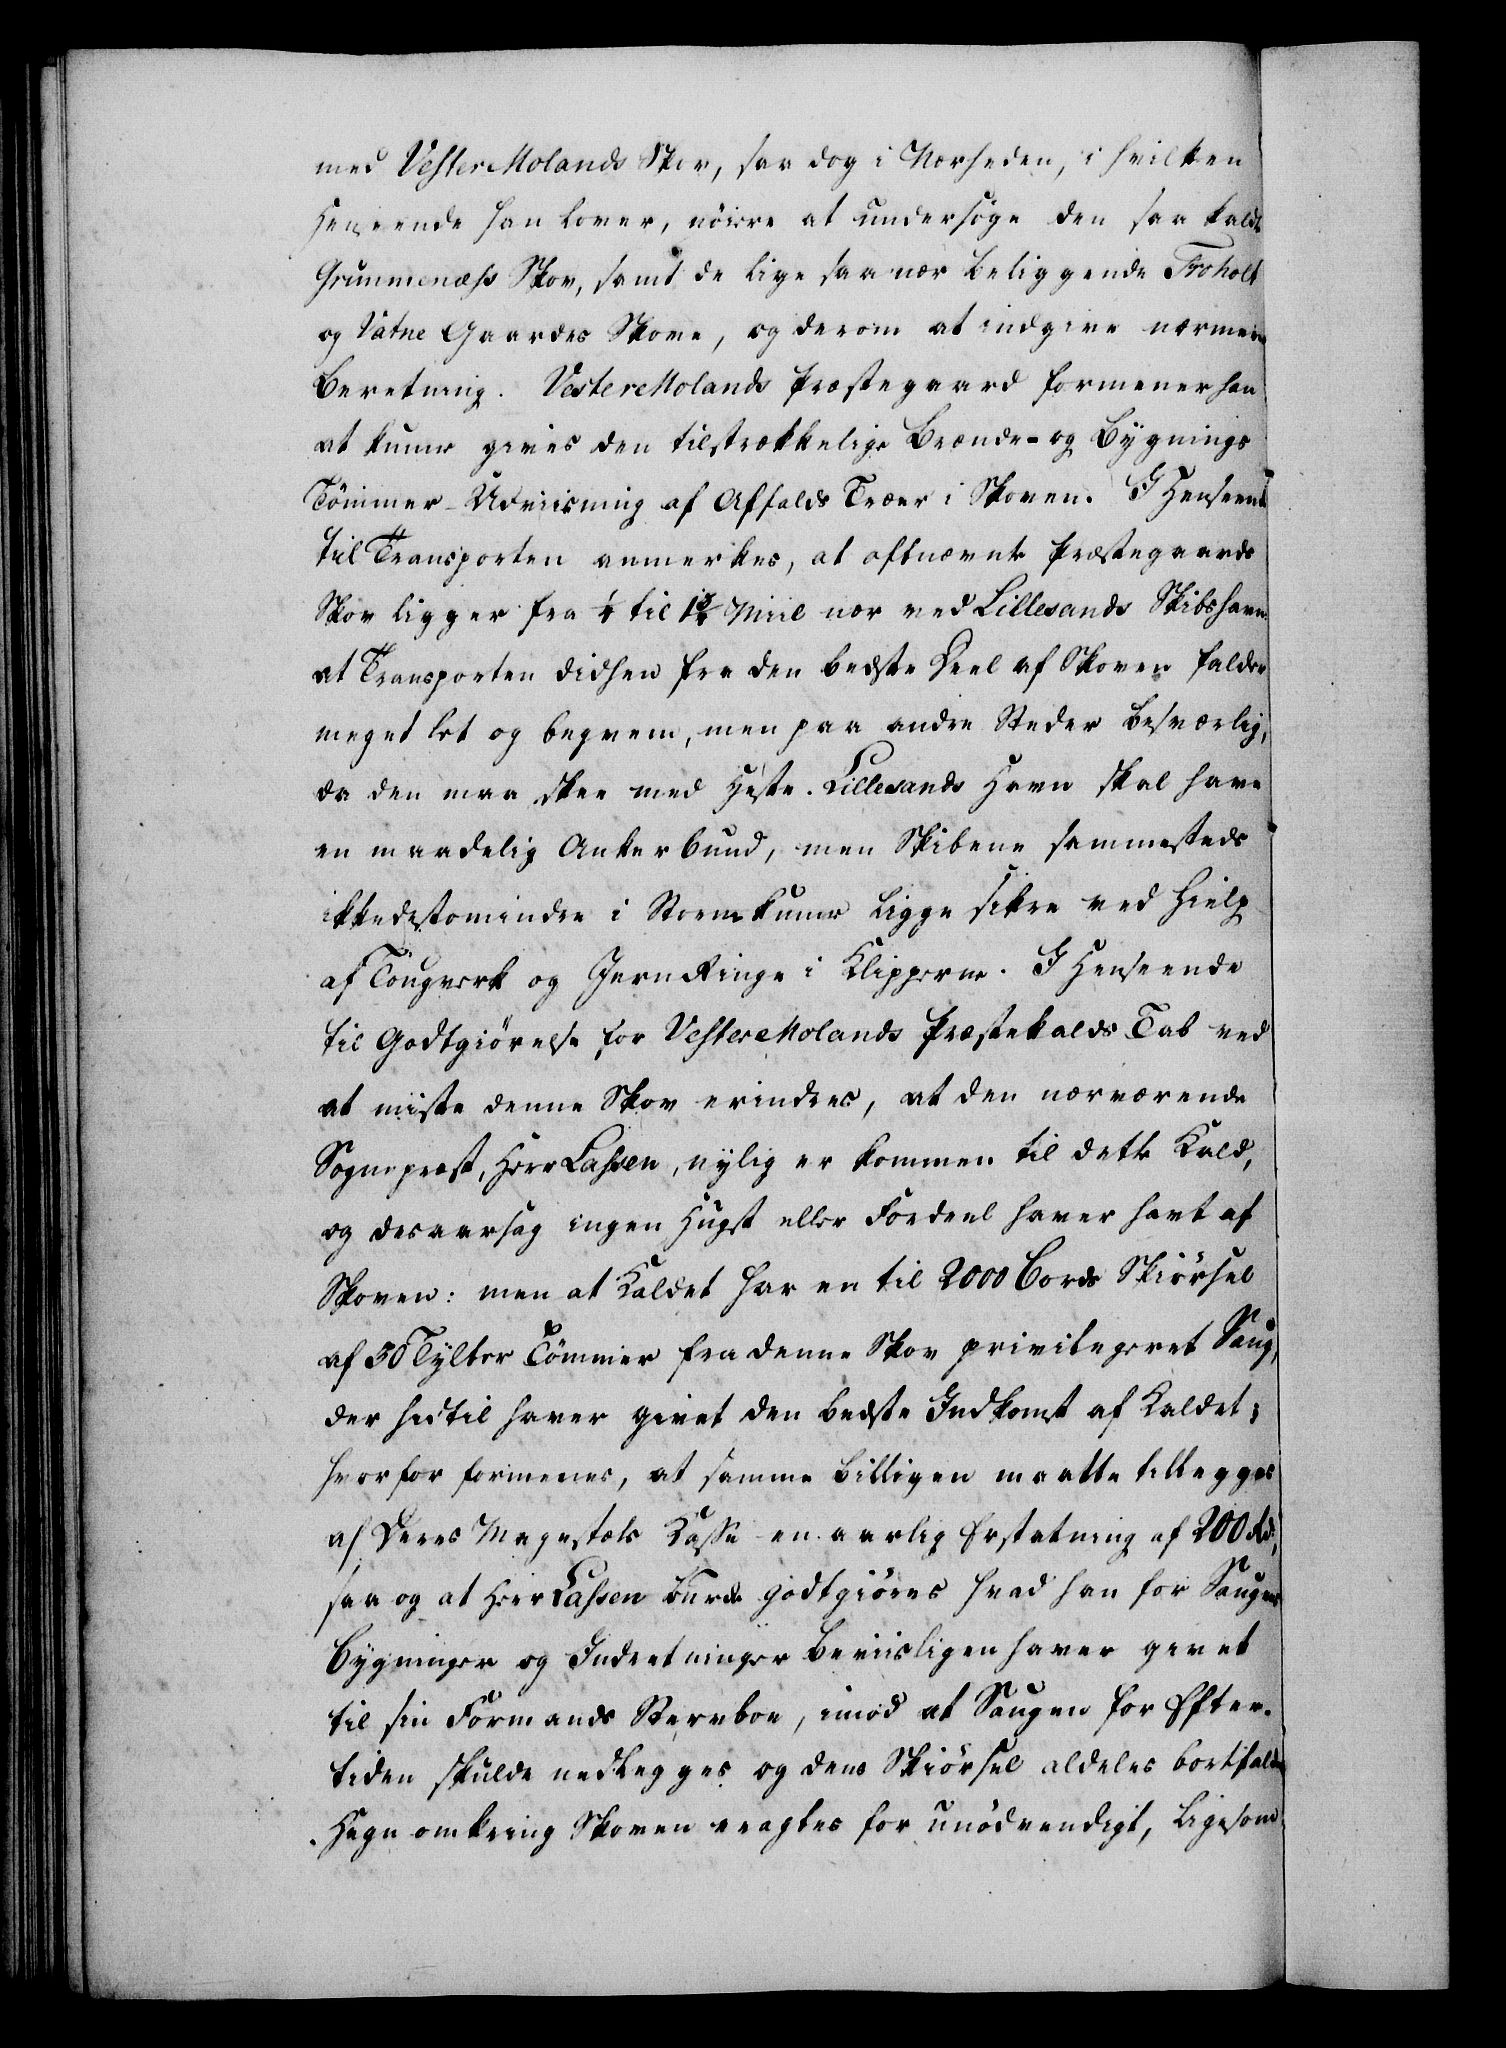 med VesterMolands Skov, saa dog i Nærheden, i hvilken
Henseende han lover, nöiere at undersöge den saa kaldte
Grunmenæss Skov, samt de lige saa nær beliggende Troholt
og Vatne Gaardes Skove, og derom at indgive nærmere
Beretning. VesterMolands Præstegaard formener han
at kunne gives den tilstrækkelige Brænde- og Bygnings
Tömmer-Udviisning af Affalds Træer i Skoven. I Henseende
til Transporten anmerkes, at oftnævnte Præstegaards
Skov ligger fra ¼ til 1¾ Miil nær ved Lillesands Skibshavn,
at Transporten didhen fra den bedste Deel af Skoven falder
meget let og beqvem, men paa andre Steder besværlig,
da den maa skee med Heste. Lillesands Havn skal have
en maadelig Ankerbund, men Skibene sammesteds
ikkedestomindre i Storm kunne ligge sikre ved Hielp
af Tougverk og Jern Ringe i Klipperne. I Henseende
til Godtgiörelse for VesterMolands Præstekalds Tab ved
at miste denne Skov erindres, at den nærværende
Sognepræst, Herr Lassen, nylig er kommen til dette Kald,
og desaarsag ingen Hugst eller Fordeel haver havt af
Skoven: men at Kaldet har en til 2000 Bords Skiörsel
af 50 Tylter Tömmer fra denne Skov privilegeret Saug,
der hidtil haver givet den bedste Indkomst af Kaldet;
hvorfor formenes, at samme billigen maatte tillegges
af Deres Majestæts Kasse en aarlig Erstatning af 200 Rd,
saa og at Herr Lassen burde godtgiöres hvad han for Saugens
Bygninger og Indretninger beviisligen haver givet
til sin Formands Sterboe, imod at Saugen for Efter-
tiden skulde nedlegges og dens Skiörsel aldeles bortfalde
Hegn omkring Skoven eragtes for unödvendigt, ligesom